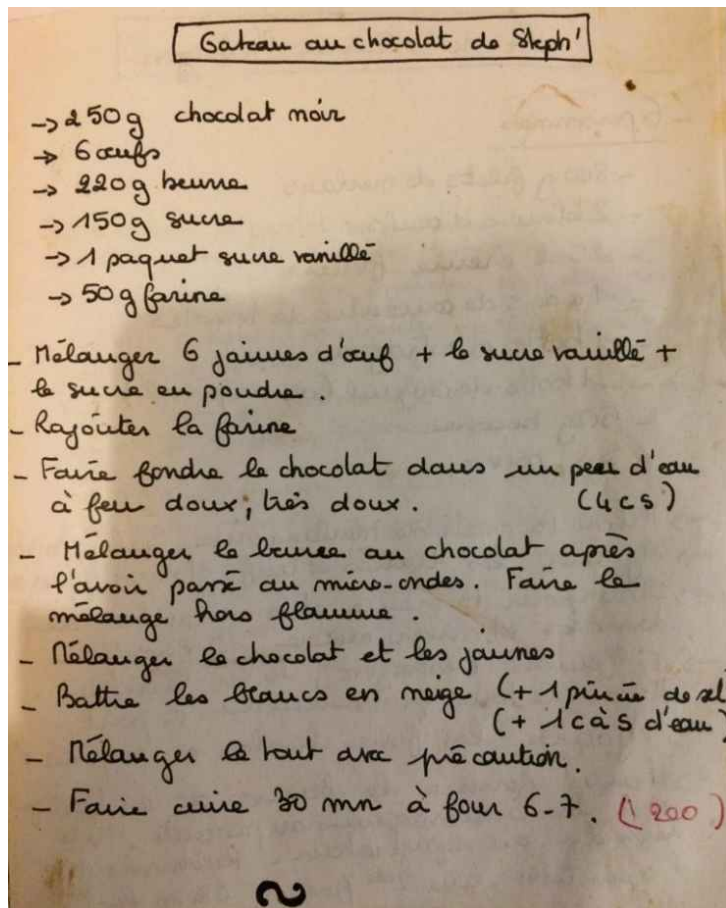 Gateau au chocolat de Steph'
→ 250g chocolat noir
→ 6 œufs
→ 220g beurre
→ 150g sucre
→ 1 paquet sucre vanillé
→ 50g farine
- Mélanger 6 jaunes d'œuf + le sucre vanillé +
le sucre en poudre.
- Rajouter la farine
- Faire fondre le chocolat dans un peu d'eau
à feu doux, très doux. (4cs)
- Mélanger le beurre au chocolat après
l'avoir passé au micro-ondes. Faire le
mélange hors flamme.
- Mélanger le chocolat et les jaunes
- Battre les blancs en neige (+ 1 pincée de sel)
(+ 1 c à s d'eau)
- Mélanger le tout avec précaution.
- Faire cuire 30 mn à four 6-7. (200)
2